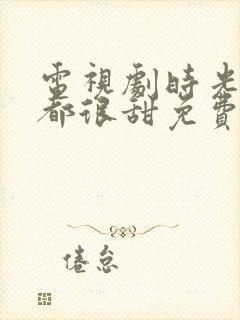 電視劇時光
都很甜免費
倦怠